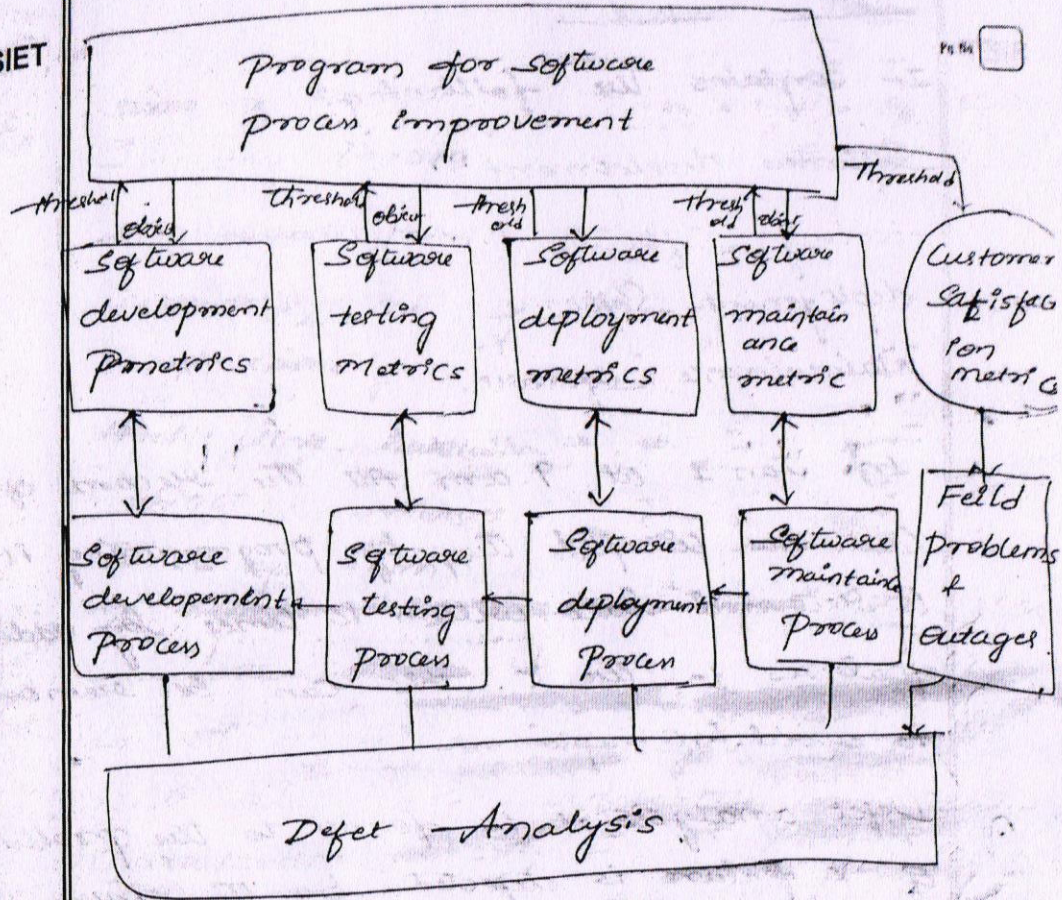 SIET
Pg No
Program for Software
Process improvement
Threshold
threshol
objec
threshol
objec
thresh
old
thresh
old
objec
Software
development
Pmetrics
Software
testing
Metrics
Software
deployment
metrics
Software
maintain
ance
metric
Customer
Satisfac
ion
metric
Software
developement
Process
Software
testing
process
Software
deployment
Process
Software
maintaina
Process
Feild
Problems
&
Outages
Defet Analysis